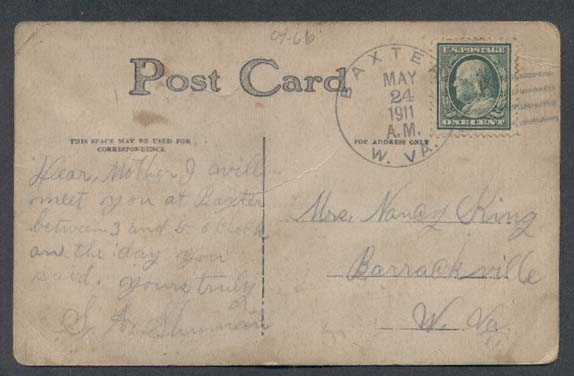 Post Card
THIS SPACE MAY BE USED FOR
CORRESPONDENCE
FOR ADDRESS ONLY
BAXTER
MAY
24
1911
A.M.
W. VA.
U.S. POSTAGE
ONE CENT
Dear Mother I will
meet you at Baxter
between 3 and 6 o clock
on the day you
said. yours truly
Mrs. Nancy King
Barrackville
W. Va.